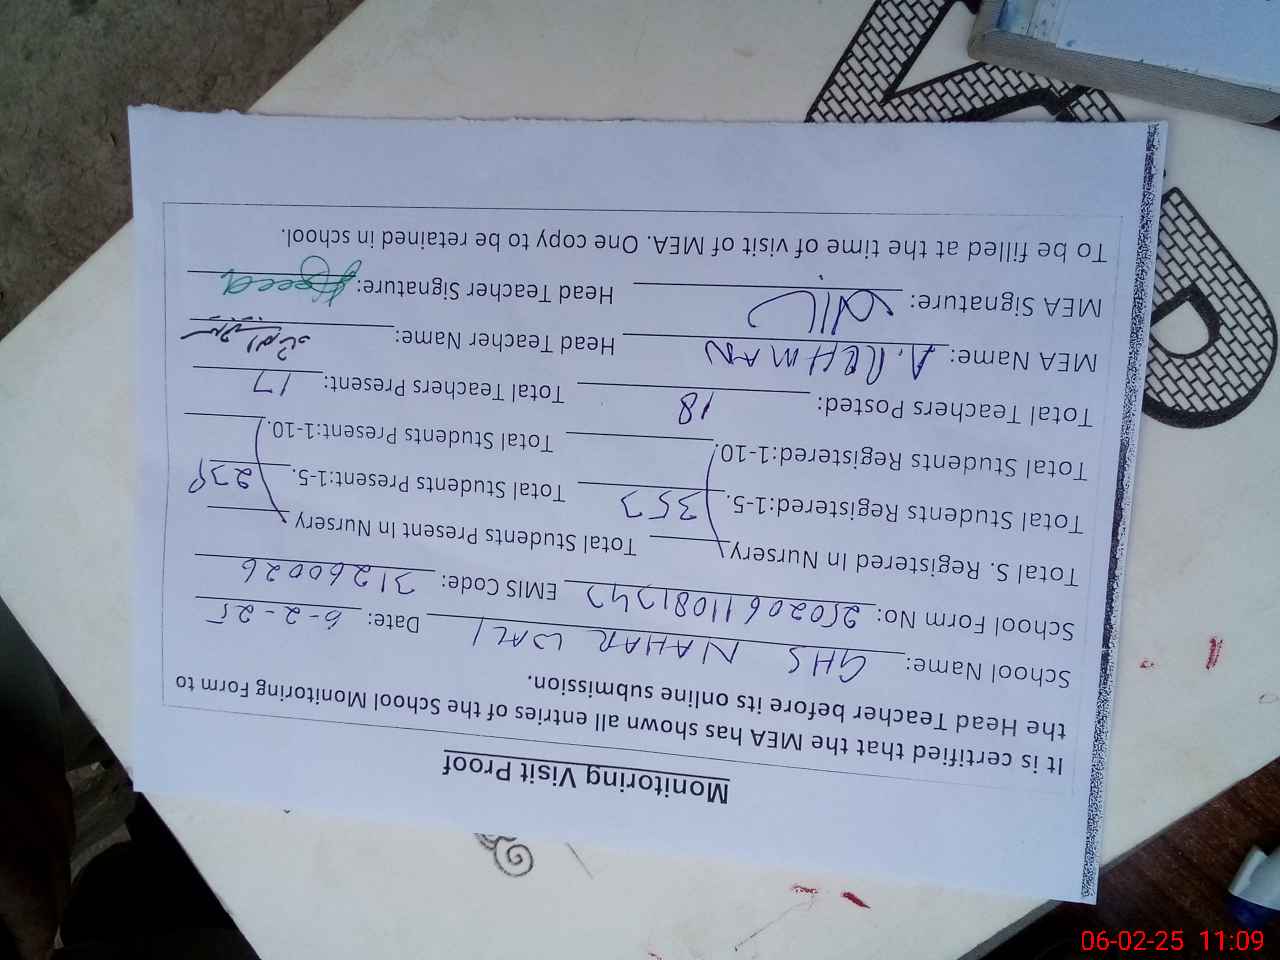 Monitoring Visit Proof
It is certified that the MEA has shown all entries of the School Monitoring Form to
the Head Teacher before its online submission.
School Name: GHS NAHAR WALI Date: 6-2-25
School Form No: EMIS Code: 31260026
Total S. Registered In Nursery Total Students Present In Nursery
Total Students Registered:1-5. 353 Total Students Present:1-5.
Total Students Registered:1-10. Total Students Present:1-10.
Total Teachers Posted: 18 Total Teachers Present: 17
MEA Name: A. REHMAN Head Teacher Name:
MEA Signature: Head Teacher Signature:
To be filled at the time of visit of MEA. One copy to be retained in school.
06-02-25 11:09